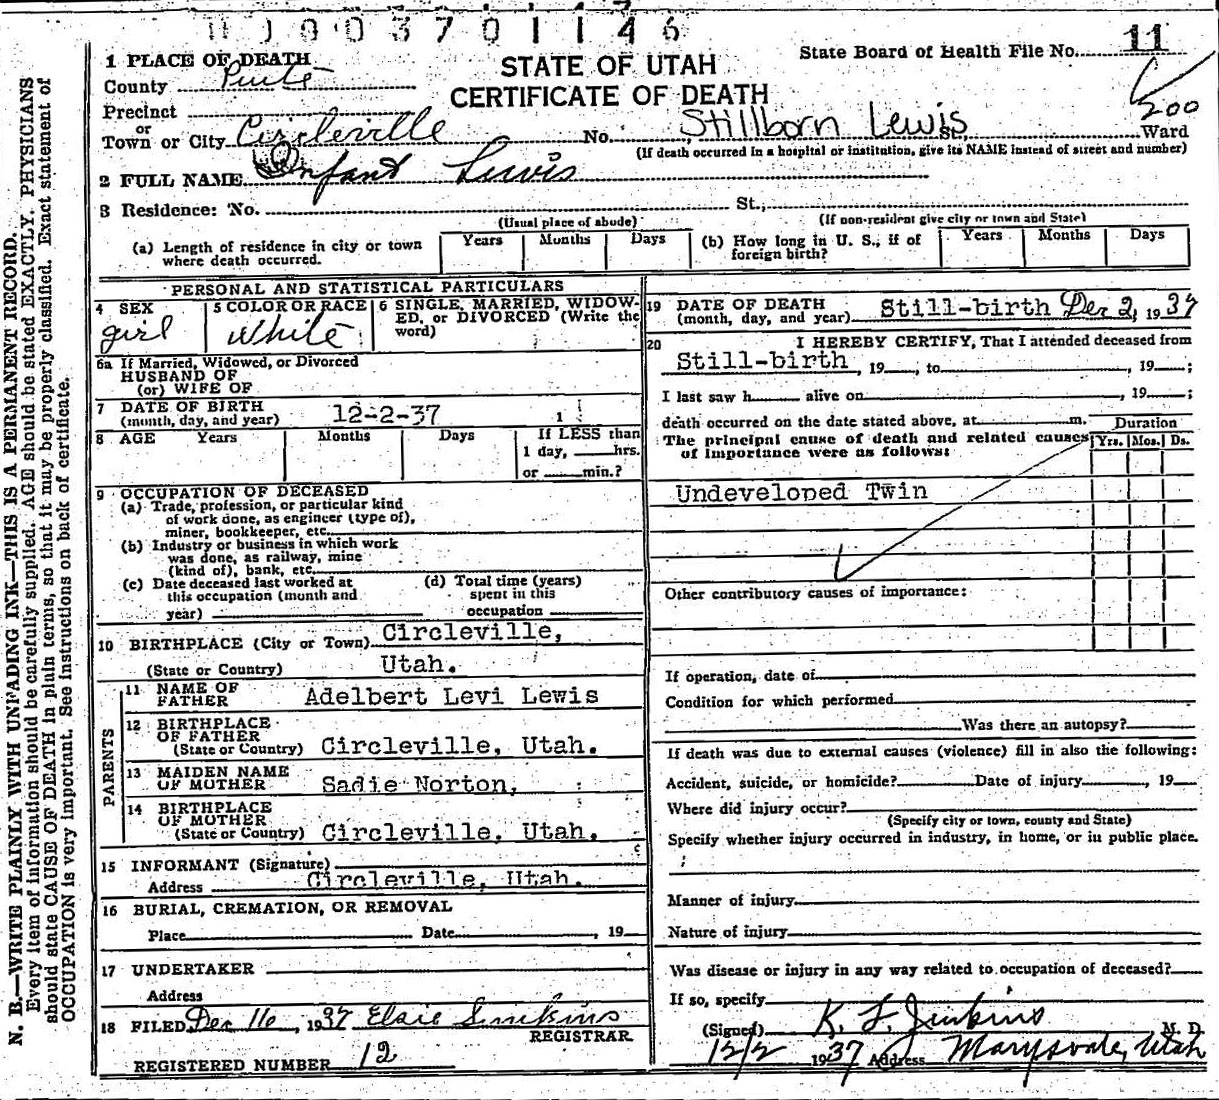 0003701146
11
State Board of Health File No.
200
STATE OF UTAH
CERTIFICATE OF DEATH
1 PLACE OF DEATH
County Piute
Precinct
or
Town or City Circleville No. Stillborn Lewis St. Ward
(If death occurred in a hospital or institution, give its NAME instead of street and number)
2 FULL NAME Infant Lewis
3 Residence: No. St.,
(Usual place of abode) (If non-resident give city or town and State)
(a) Length of residence in city or town where death occurred. Years Months Days
(b) How long in U. S., if of foreign birth? Years Months Days
PERSONAL AND STATISTICAL PARTICULARS
4 SEX girl
5 COLOR OR RACE White
6 SINGLE, MARRIED, WIDOWED, or DIVORCED (Write the word)
6a If Married, Widowed, or Divorced
HUSBAND OF
(or) WIFE OF
7 DATE OF BIRTH
(month, day, and year) 12-2-37 1
8 AGE Years Months Days If LESS than
1 day, hrs.
or min.?
9 OCCUPATION OF DECEASED
(a) Trade, profession, or particular kind
of work done, as engineer (type of),
miner, bookkeeper, etc.
(b) Industry or business in which work
was done, as railway, mine
(kind of), bank, etc.
(c) Date deceased last worked at
this occupation (month and
year)
(d) Total time (years)
spent in this
occupation
10 BIRTHPLACE (City or Town) Circleville,
(State or Country) Utah.
PARENTS
11 NAME OF
FATHER Adelbert Levi Lewis
12 BIRTHPLACE
OF FATHER
(State or Country) Circleville, Utah.
13 MAIDEN NAME
OF MOTHER Sadie Norton,
14 BIRTHPLACE
OF MOTHER
(State or Country) Circleville, Utah.
15 INFORMANT (Signature)
Address Circleville, Utah.
16 BURIAL, CREMATION, OR REMOVAL
Place Date , 19
17 UNDERTAKER
Address
18 FILED Dec 16, 1937 Elsie
REGISTRAR
REGISTERED NUMBER 12
19 DATE OF DEATH
(month, day, and year) Still-birth Dec 2, 1937
20 I HEREBY CERTIFY, That I attended deceased from
Still-birth, 19 , to , 19 ;
I last saw h alive on , 19 ;
death occurred on the date stated above, at m.
The principal cause of death and related causes
of importance were as follows:
Duration
Yrs. Mos. Ds.
Undeveloped Twin
Other contributory causes of importance:
If operation, date of
Condition for which performed
Was there an autopsy?
If death was due to external causes (violence) fill in also the following:
Accident, suicide, or homicide? Date of injury , 19
Where did injury occur?
(Specify city or town, county and State)
Specify whether injury occurred in industry, in home, or in public place.
Manner of injury
Nature of injury
Was disease or injury in any way related to occupation of deceased?
If so, specify
(Signed) K. L. Jenkins M. D.
12/2 1937 Address Marysvale, Utah
N. B.—WRITE PLAINLY WITH UNFADING INK—THIS IS A PERMANENT RECORD.
Every item of information should be carefully supplied. AGE should be stated EXACTLY. PHYSICIANS
should state CAUSE OF DEATH in plain terms, so that it may be properly classified. Exact statement of
OCCUPATION is very important. See instructions on back of certificate.